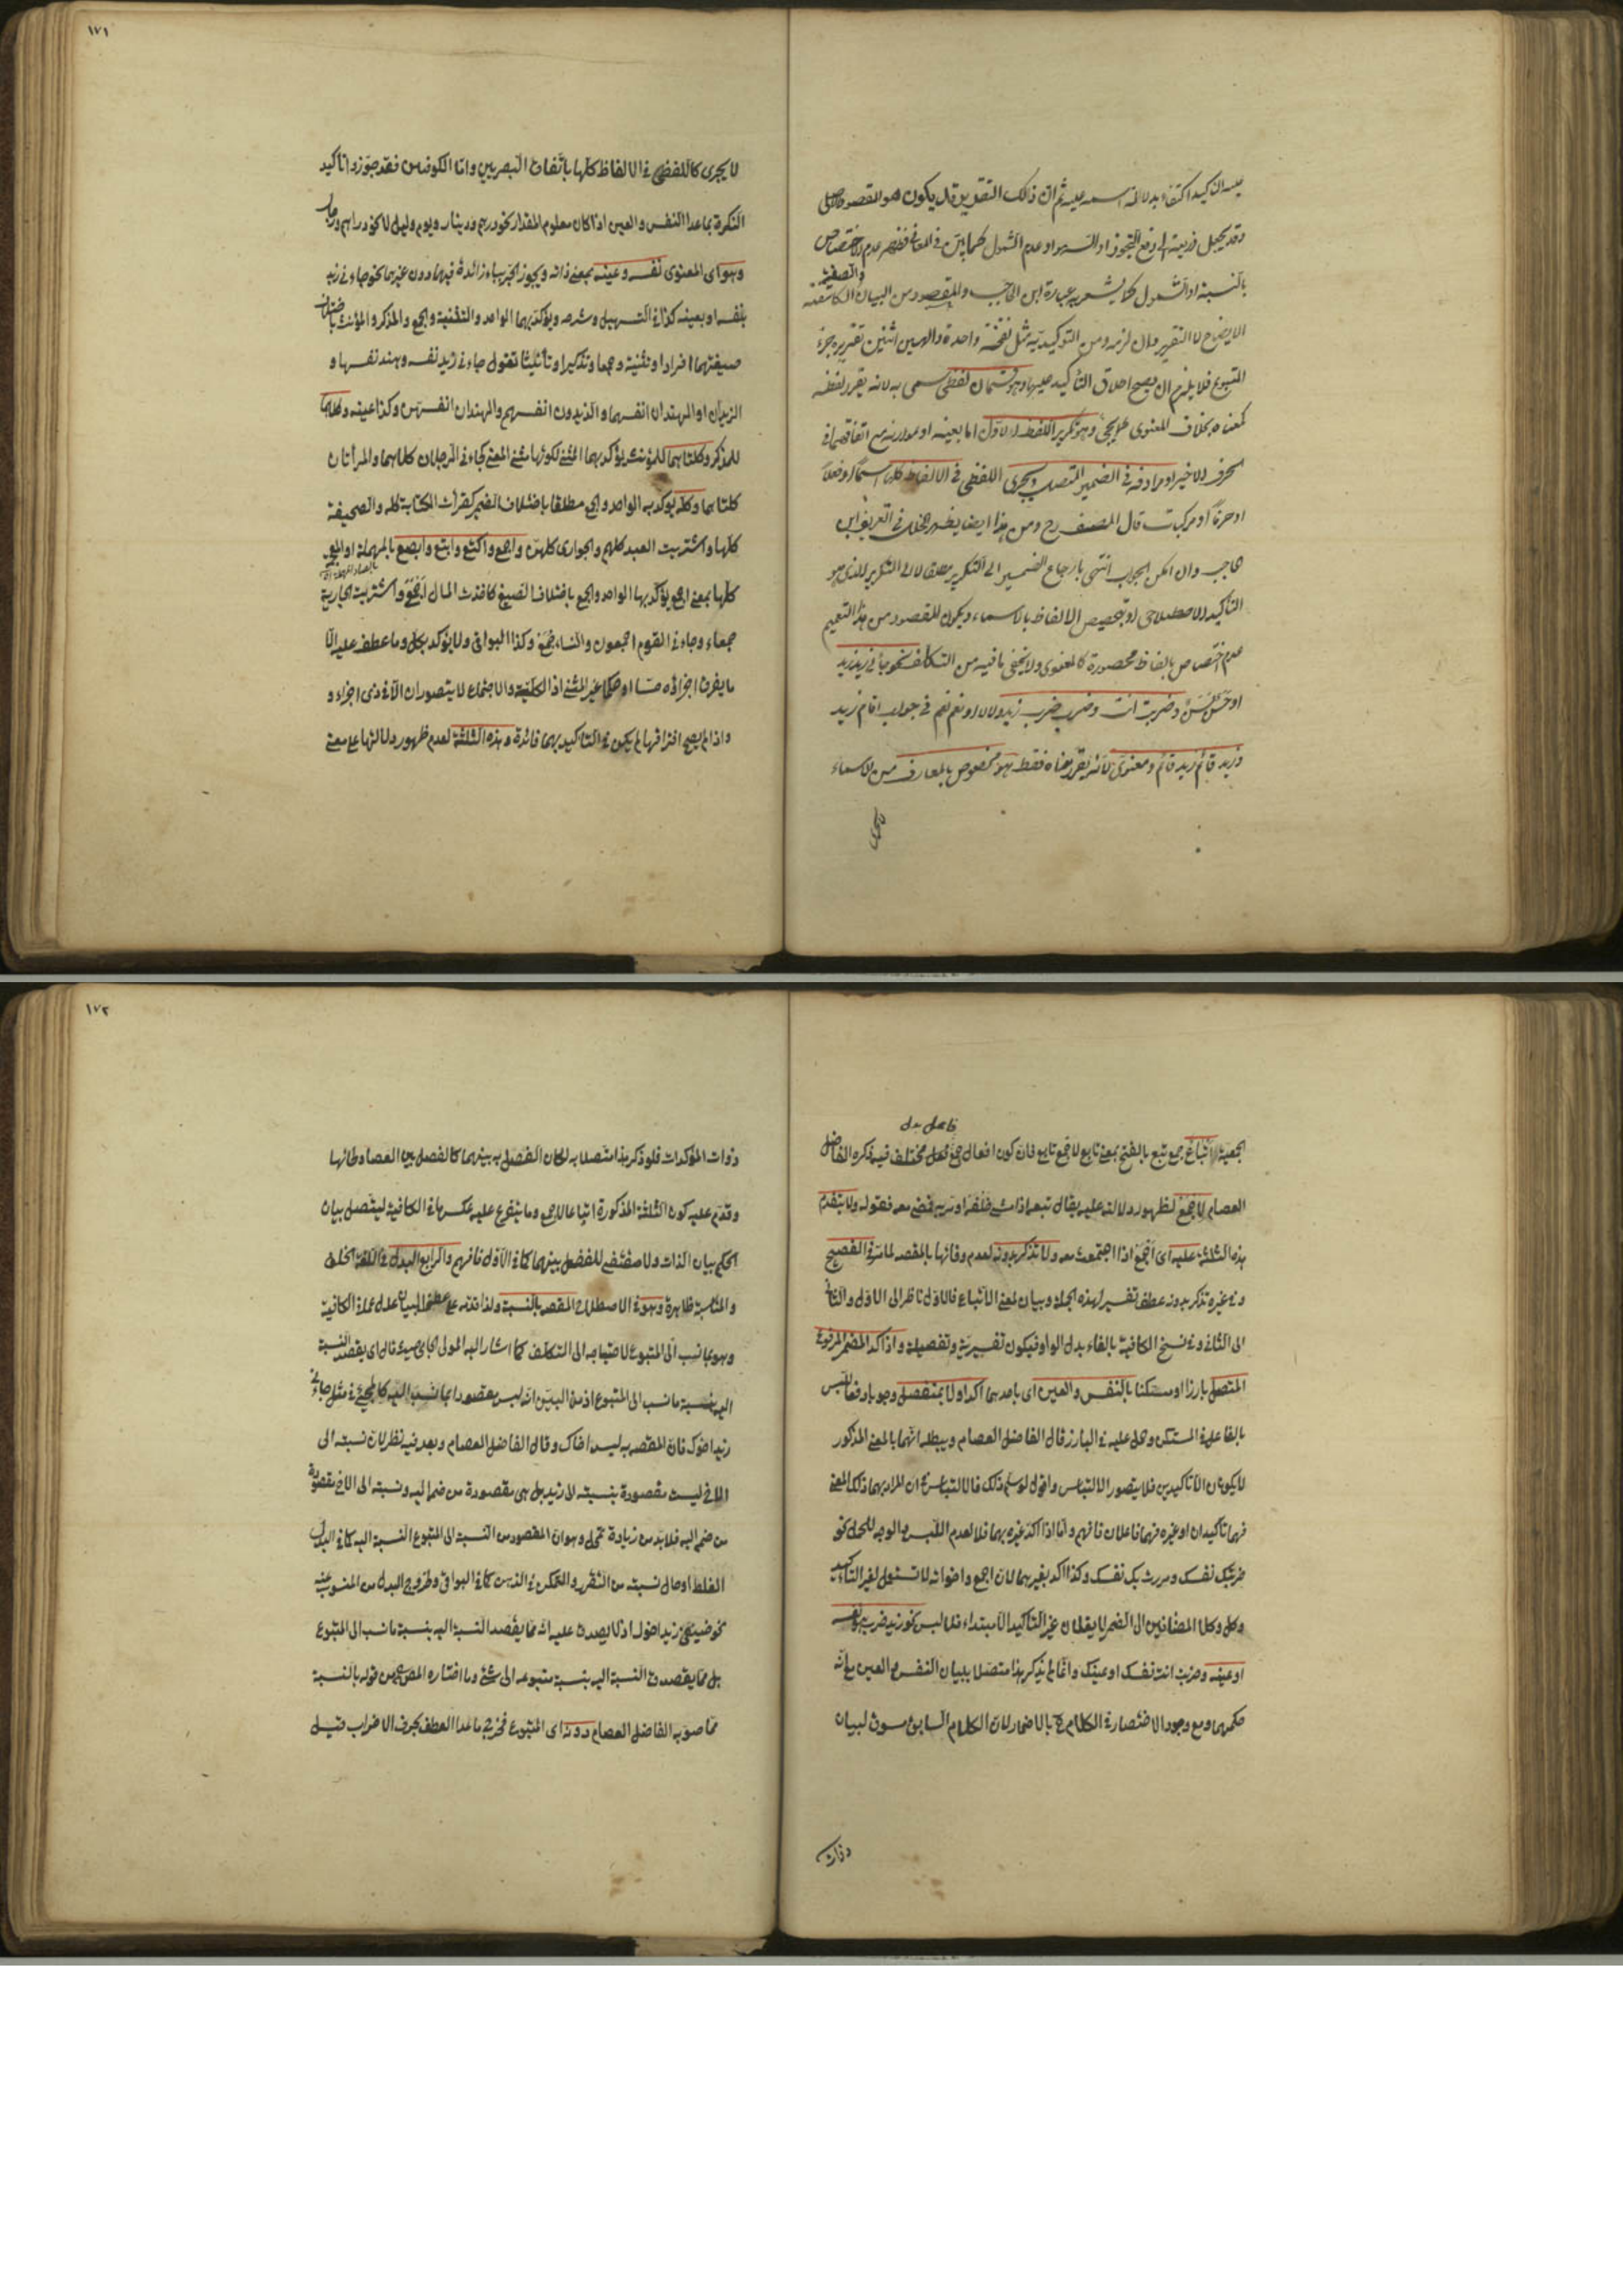 عليه التأكيد اكتفاء بدلالة اسمه عليه ثم ان ذلك التقرير قد يكون هو المقصود الاصلي
وقد يجعل ذريعة الى دفع التجوز او السهو او عدم الشمول كما بين في المعاني فظهر عدم الاختصاص
بالنسبة او الشمول كما يشعر به عبارة ابن الحاجب والمقصود من البيان والصفة الكاشفة
الايضاح لا التقرير وان لزمه ومن التوكيدية مثل نفخة واحدة والهين اثنين تقرير جزء
المتبوع فلا يلزم ان يصح اطلاق التأكيد عليها وهو قسمان لفظي سمى به لانه يقرر لفظه
كمعناه بخلاف المعنوي كما يجئ وهو تكرير اللفظ الاول اما بعينه او بموازنه مع اتفاقهما في
الحرف الاخير او مرادفه في الضمير المتصل ويجري اللفظي في الالفاظ كلها اسما او فعلا
او حرفا او مركبات قال المصنف رح ومن هذا ايضا يظهر الخلل في تعريف ابن
الحاجب وان امكن الجواب انتهى بارجاع الضمير الى التكرير مطلقا لا الى التكرير الذي هو
التأكيد الاصطلاحي او بتخصيص الالفاظ بالاسماء ويكون المقصود من هذا التعميم
عدم اختصاص بالفاظ محصورة كالمعنوي ولا يخفى ما فيه من التكلف نحو جاءني زيد زيد
او حسن بسن وضربت انت وضرب ضرب زيد ولا لا او نعم نعم في جواب اقام زيد
وزيد قائم زيد قائم ومعنوي لانه يقرر معناه فقط هو مخصوص بالمعارف من الاسماء
لا يجري
١٧١
لا يجري كاللفظي في الالفاظ كلها باتفاق البصريين واما الكوفيون فقد جوزوا تأكيد
النكرة بما عدا النفس والعين اذا كان معلوم المقدار نحو درهم ودينار ويوم وليل لا نحو دراهم ورجال
وهو اى المعنوي نفسه وعينه بمعنى ذاته ويجوز الجر بباء زائدة فيهما دون غيرهما نحو جاءني زيد
بنفسه او بعينه كذا في التسهيل وشرحه ويؤكد بهما الواحد والتثنية والجمع والمذكر والمؤنث باختلاف
صيغتهما افرادا وتثنية وجمعا وتذكيرا وتأنيثا تقول جاءني زيد نفسه وهند نفسها و
الزيدان او الهندان انفسهما والزيدون انفسهم والهندات انفسهن وكذا عينه وكلاهما
للمذكر وكلتاهما للمؤنث يؤكد بهما المثنى لكونهما مثنى المعنى كجاءني الرجلان كلاهما والمرأتان
كلتاهما وكله يؤكد به الواحد والجمع مطلقا باختلاف الضمير كقرأت الكتابة كله والصحيفة
كلها واشتريت العبيد كلهم والجواري كلهن واجمع واكتع وابتع وابصع بالمهملة او المعجمة
بالصاد المهملة
كلها بمعنى اجمع يؤكد بها الواحد والجمع باختلاف الصيغ كاخذت المال اجمع واشتريت الجارية
جمعاء وجاءني القوم اجمعون والنساء جمع وكذا البواقي ولا يؤكد بكل وما عطف عليه الا
ما يفرق اجزاؤه حسا او حكما غير المثنى اذ الكلية والاجتماع لا يتصوران الا في ذي اجزاء و
واذا لم يصح افتراقها لم يكن في التأكيد بهما فائدة وهذه الثلثة لعدم ظهور دلالتها على معنى
الجمعية اتباع جمع تبع بالفتح بمعنى تابع لا جمع تابع فان كون افعال جمع فاعل مختلف فيه ذكره الفاضل
العصام لاجمع لظهور دلالته عليه يقال تبعه اذا مشى خلفه او مر به فمضى معه فقوله ولا يتقدم
هذه الثلثة عليه اى اجمع اذا اجتمعت معه ولا تذكر بدونه لعدم وفائها بالمقصد لما مر في الفصيح
وفي غيره تذكر بدونه عطف تفسير لهذه الجملة وبيان لمعنى الاتباع فالاول ناظر الى الاول والثاني
الى الثاني وفي نسخ الكافية بالفاء بدل الواو فيكون تفسيرية وتفصيلية واذا اكد المضمر المرفوع
المتصل بارزا او مستكنا بالنفس والعين اى باحدهما اكد اولا بمنفصل وجوبا دفعا للبس
بالفاعل في المستكن وحمل عليه في البارز قال الفاضل العصام ويبطله انهما بالمعنى المذكور
لا يكونان الا تأكيدين فلا يتصور الالتباس واقول لو سلم ذلك فالالتباس في ان المراد بهما ذلك المعنى
فهما تأكيدان او غيره فهما فاعلان فافهم واما اذا اكد غيره بهما فلا لعدم اللبس الموجه للحمل نحو
ضربتك نفسك ومررت بك نفسك وكذا اكد بغيرهما لان اجمع واخواته لا تستعمل لغير التأكيد
وكل وكلا المضافين الى الضمير لا يقعان غير التأكيد الا مبتداء فلا لبس نحو زيد ضرب هو نفسه
او عينه وضربت انت نفسك او عينك وانما لم يذكر هذا متصلا ببيان النفس والعين مع انه
حكمهما ومع وجود الاختصار في الكلام ح بالاضمار لان الكلام السابق مسوق لبيان
ذوات
١٧٢
ذوات المؤكدات فلو ذكر هذا متصلا به لكان الفصل به بينهما كالفصل بين العصا ولحائها
وقدم عليه كون الثلثة المذكورة اتباعا لاجمع وما يتفرع عليه عكس ما في الكافية ليتصل بيان
الحكم ببيان الذات ولا مقتضى للفصل بينهما كما في الاول فافهم والرابع البدل في اللغة الخلف
والمناسبة ظاهرة وهو في الاصطلاح المقصد بالنسبة ولذا قدمه على عطف البيان عدل عما في الكافية
وهو بما نسب الى المتبوع لاحتياجه الى التكلف كما اشار اليه المولى الجامي حيث قال اى يقصد النسبة
اليه بنسبة ما نسب الى المتبوع اذ من البين انه ليس مقصودا بما نسب اليه كالمجئ في مثل جاءني
زيد اخوك فان المقصد به ليس اخاك وقال الفاضل العصام وبعد فيه نظر لان نسبته الى
الاخ ليست مقصودة بنسبته الى زيد بل هي مقصودة من ضم اليه ونسبته الى الاخ مقصودة
من ضم اليه فلا بد من زيادة تمحل وهو ان المقصود من النسبة الى المتبوع النسبة اليه كما في البدل
الغلط او حال نسبته من التقرر والتمكن في الذهن كما في البواقي وخروج البدل من المنسوب عنه
نحو ضربني زيد اخوك اذ لا يصدق عليه انه مما يقصد النسبة اليه بنسبة ما نسب الى المتبوع
بل مما يقصد النسبة اليه بنسبة متبوعه الى شئ وما اختاره المصنف من قوله بالنسبة
مما صوبه الفاضل العصام دونه اى المتبوع فخرج ما عدا العطف بحرف الاضراب قيل